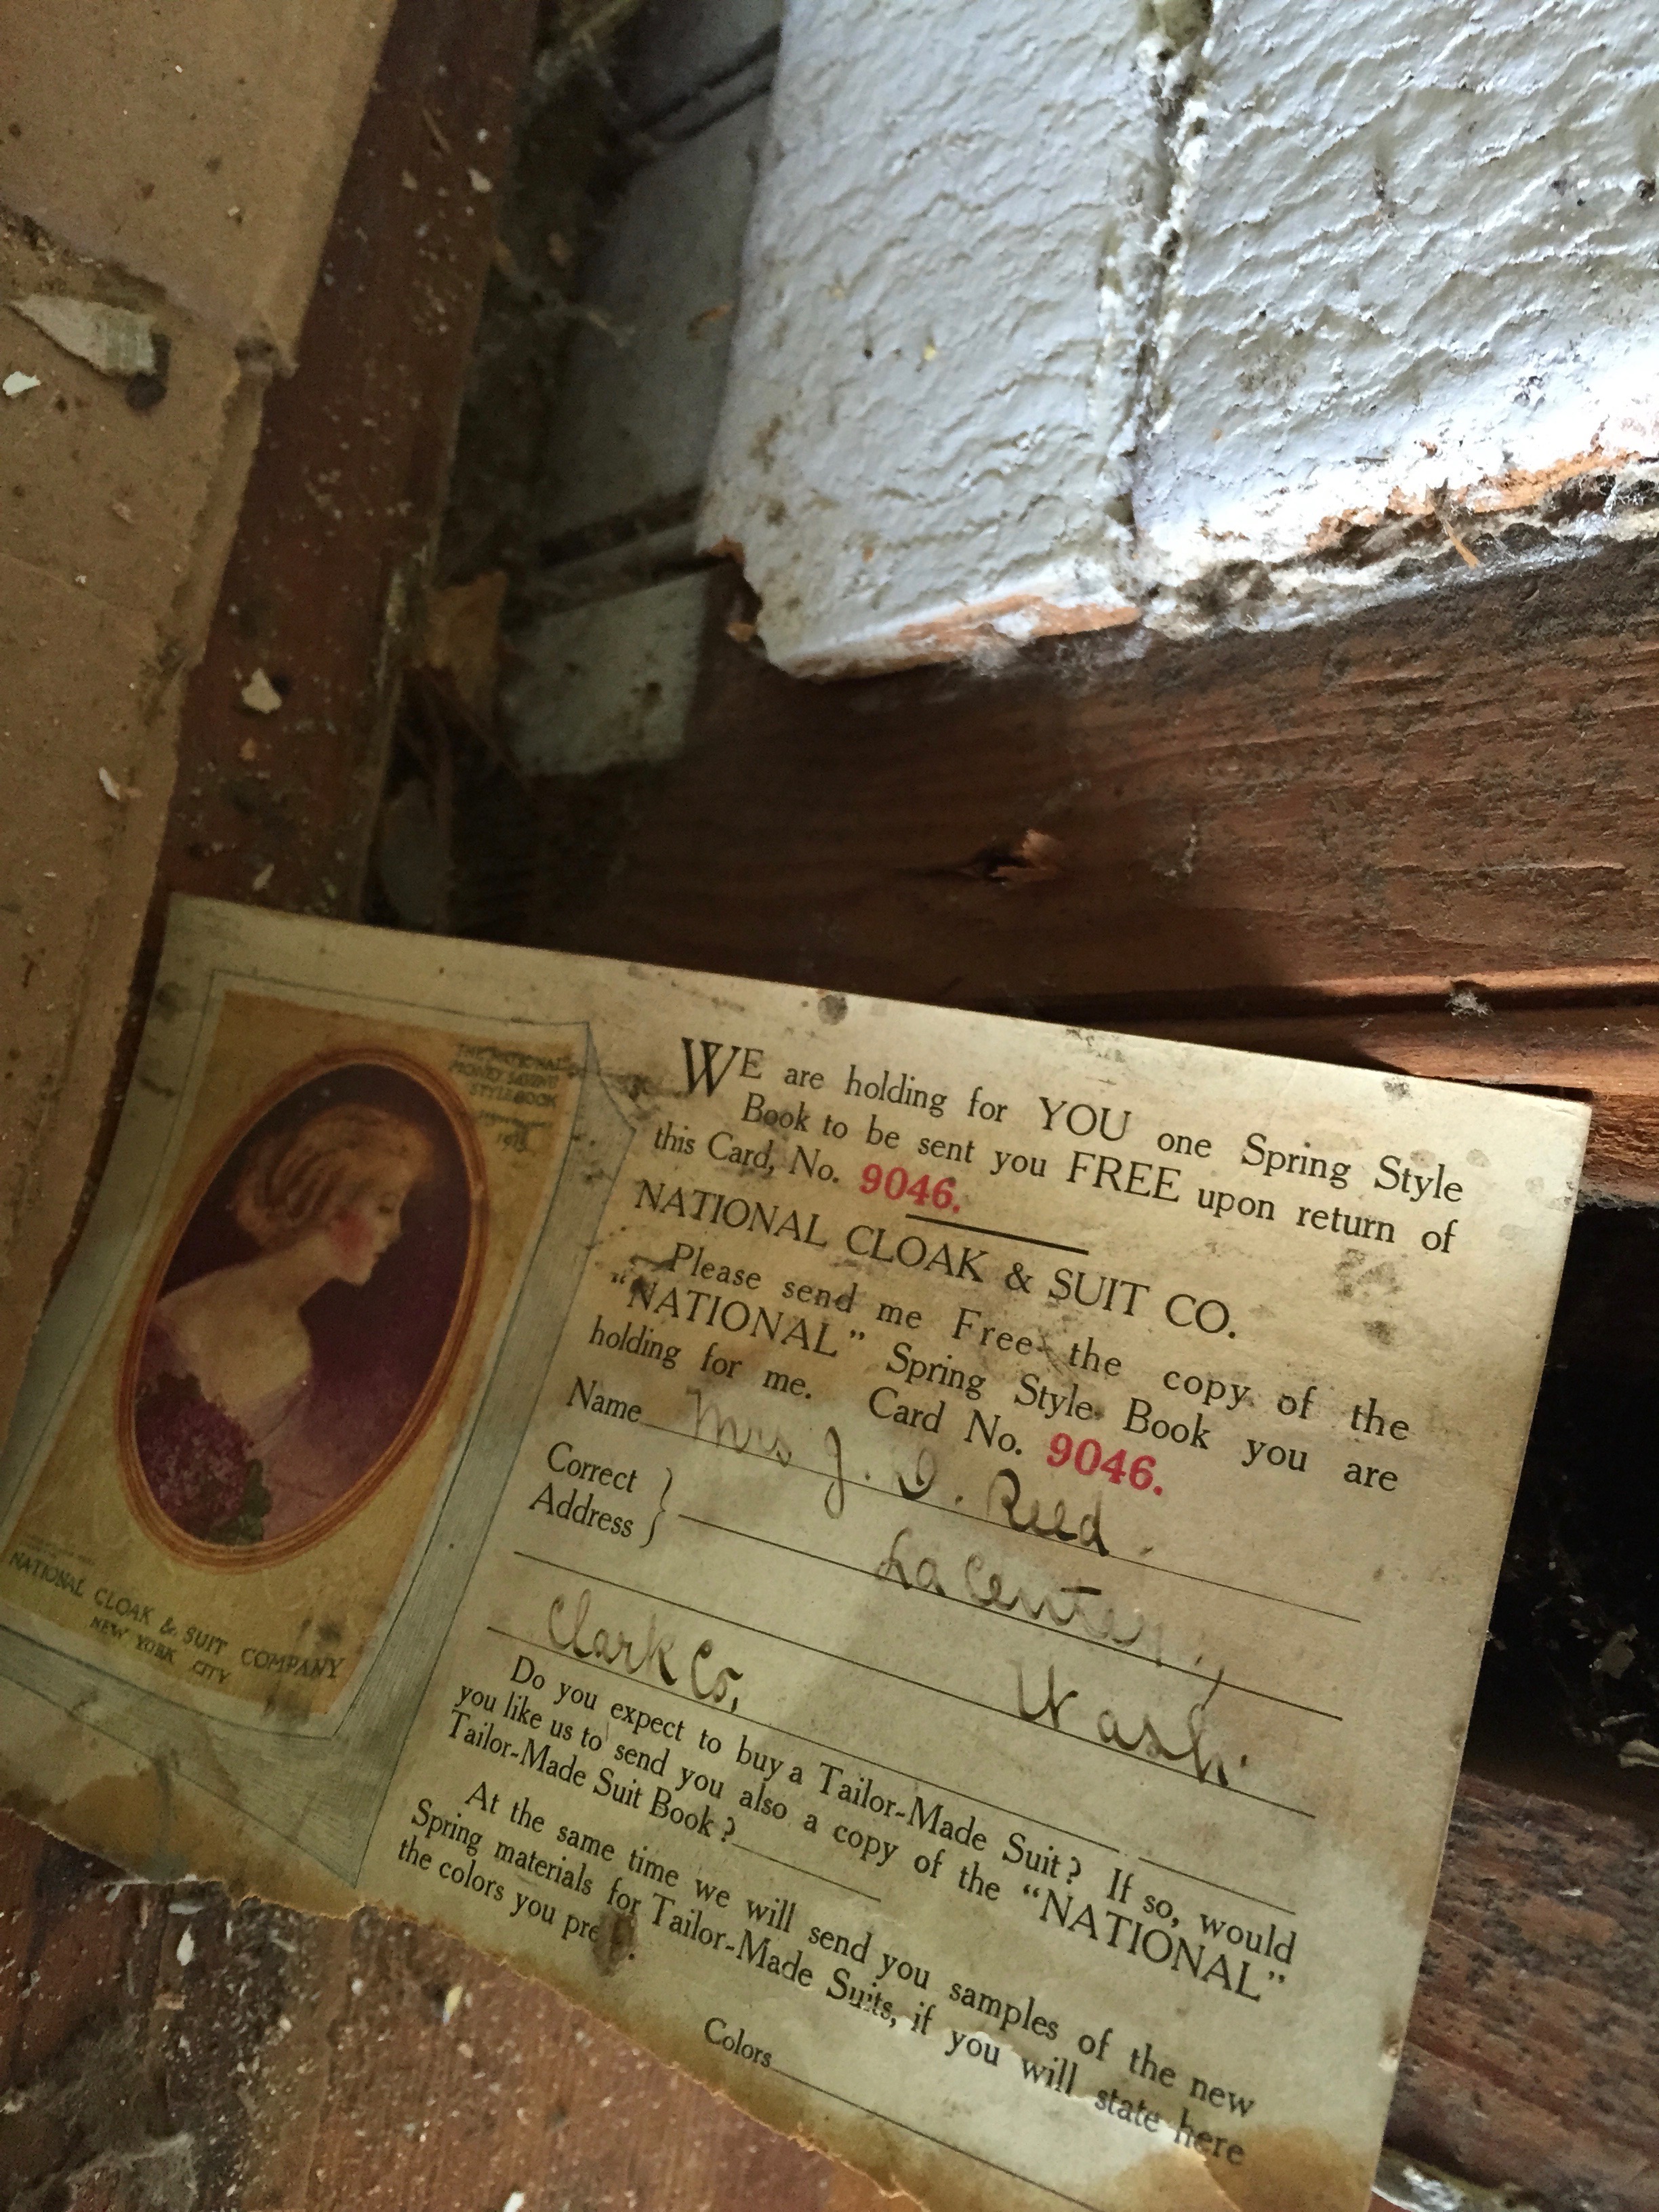 THE NATIONAL
MONEY SAVING
STYLE BOOK
NATIONAL CLOAK & SUIT COMPANY
NEW YORK CITY
WE are holding for YOU one Spring Style
Book to be sent you FREE upon return of
this Card, No. 9046.
NATIONAL CLOAK & SUIT CO.
Please send me Free the copy of the
"NATIONAL" Spring Style Book you are
holding for me. Card No. 9046.
Name Mrs J. D. Reed.
Correct Address } La Center,
Clark Co, Wash.
Do you expect to buy a Tailor-Made Suit? If so, would
you like us to send you also a copy of the "NATIONAL"
Tailor-Made Suit Book?
At the same time we will send you samples of the new
Spring materials for Tailor-Made Suits, if you will state here
the colors you
Colors